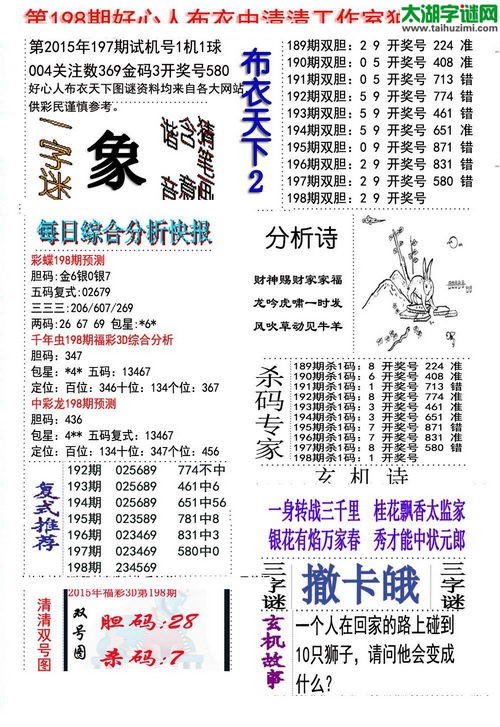 第198期好心人布衣中清清工作室
太湖字谜网
www.taihuzimi.com
第2015年197期试机号1机1球
004关注数369金码3开奖号580
好心人布衣天下图谜资料均来自各大网站
供彩民谨慎参考。
一字迷
象
布衣天下2
189期双胆：2 9 开奖号 224 准
190期双胆：0 5 开奖号 408 准
191期双胆：0 5 开奖号 713 错
192期双胆：2 9 开奖号 774 错
193期双胆：2 9 开奖号 461 错
194期双胆：2 9 开奖号 651 错
195期双胆：0 9 开奖号 871 错
196期双胆：2 9 开奖号 831 错
197期双胆：2 9 开奖号 580 错
198期双胆：2 9 开奖号
每日综合分析快报
彩蝶198期预测
胆码：金6银0银7
五码复式：02679
三三三：206/607/269
两码：26 67 69 包星：*6*
千年虫198期福彩3D综合分析
胆码：347
包星：*4* 五码：13467
定位：百位：346十位：134个位：367
中彩龙198期预测
胆码：436
包星：4** 五码复式：13467
定位：百位：134十位：347个位：456
分析诗
财神赐财家家福
龙吟虎啸一时发
风吹草动见牛羊
杀码专家
189期杀1码：8 开奖号 224 准
190期杀1码：6 开奖号 408 准
191期杀1码：1 开奖号 713 错
192期杀1码：8 开奖号 774 准
193期杀1码：3 开奖号 461 准
194期杀1码：3 开奖号 651 准
195期杀1码：7 开奖号 871 错
196期杀1码：7 开奖号 831 准
197期杀1码：8 开奖号 580 错
198期杀1码：1 开奖号
复式推荐
192期 025689 774不中
193期 025689 461中6
194期 025689 651中56
195期 023589 781中8
196期 023469 831中3
197期 023469 580中0
198期 234569
玄机诗
一身转战三千里 桂花飘香太监家
银花有焰万家春 秀才能中状元郎
清清双号图
2015年福彩3D第198期
双号图
胆码：28
杀码：7
三字谜
撤卡皒
三字谜
玄机故事
一个人在回家的路上碰到
10只狮子，请问他会变成
什么？